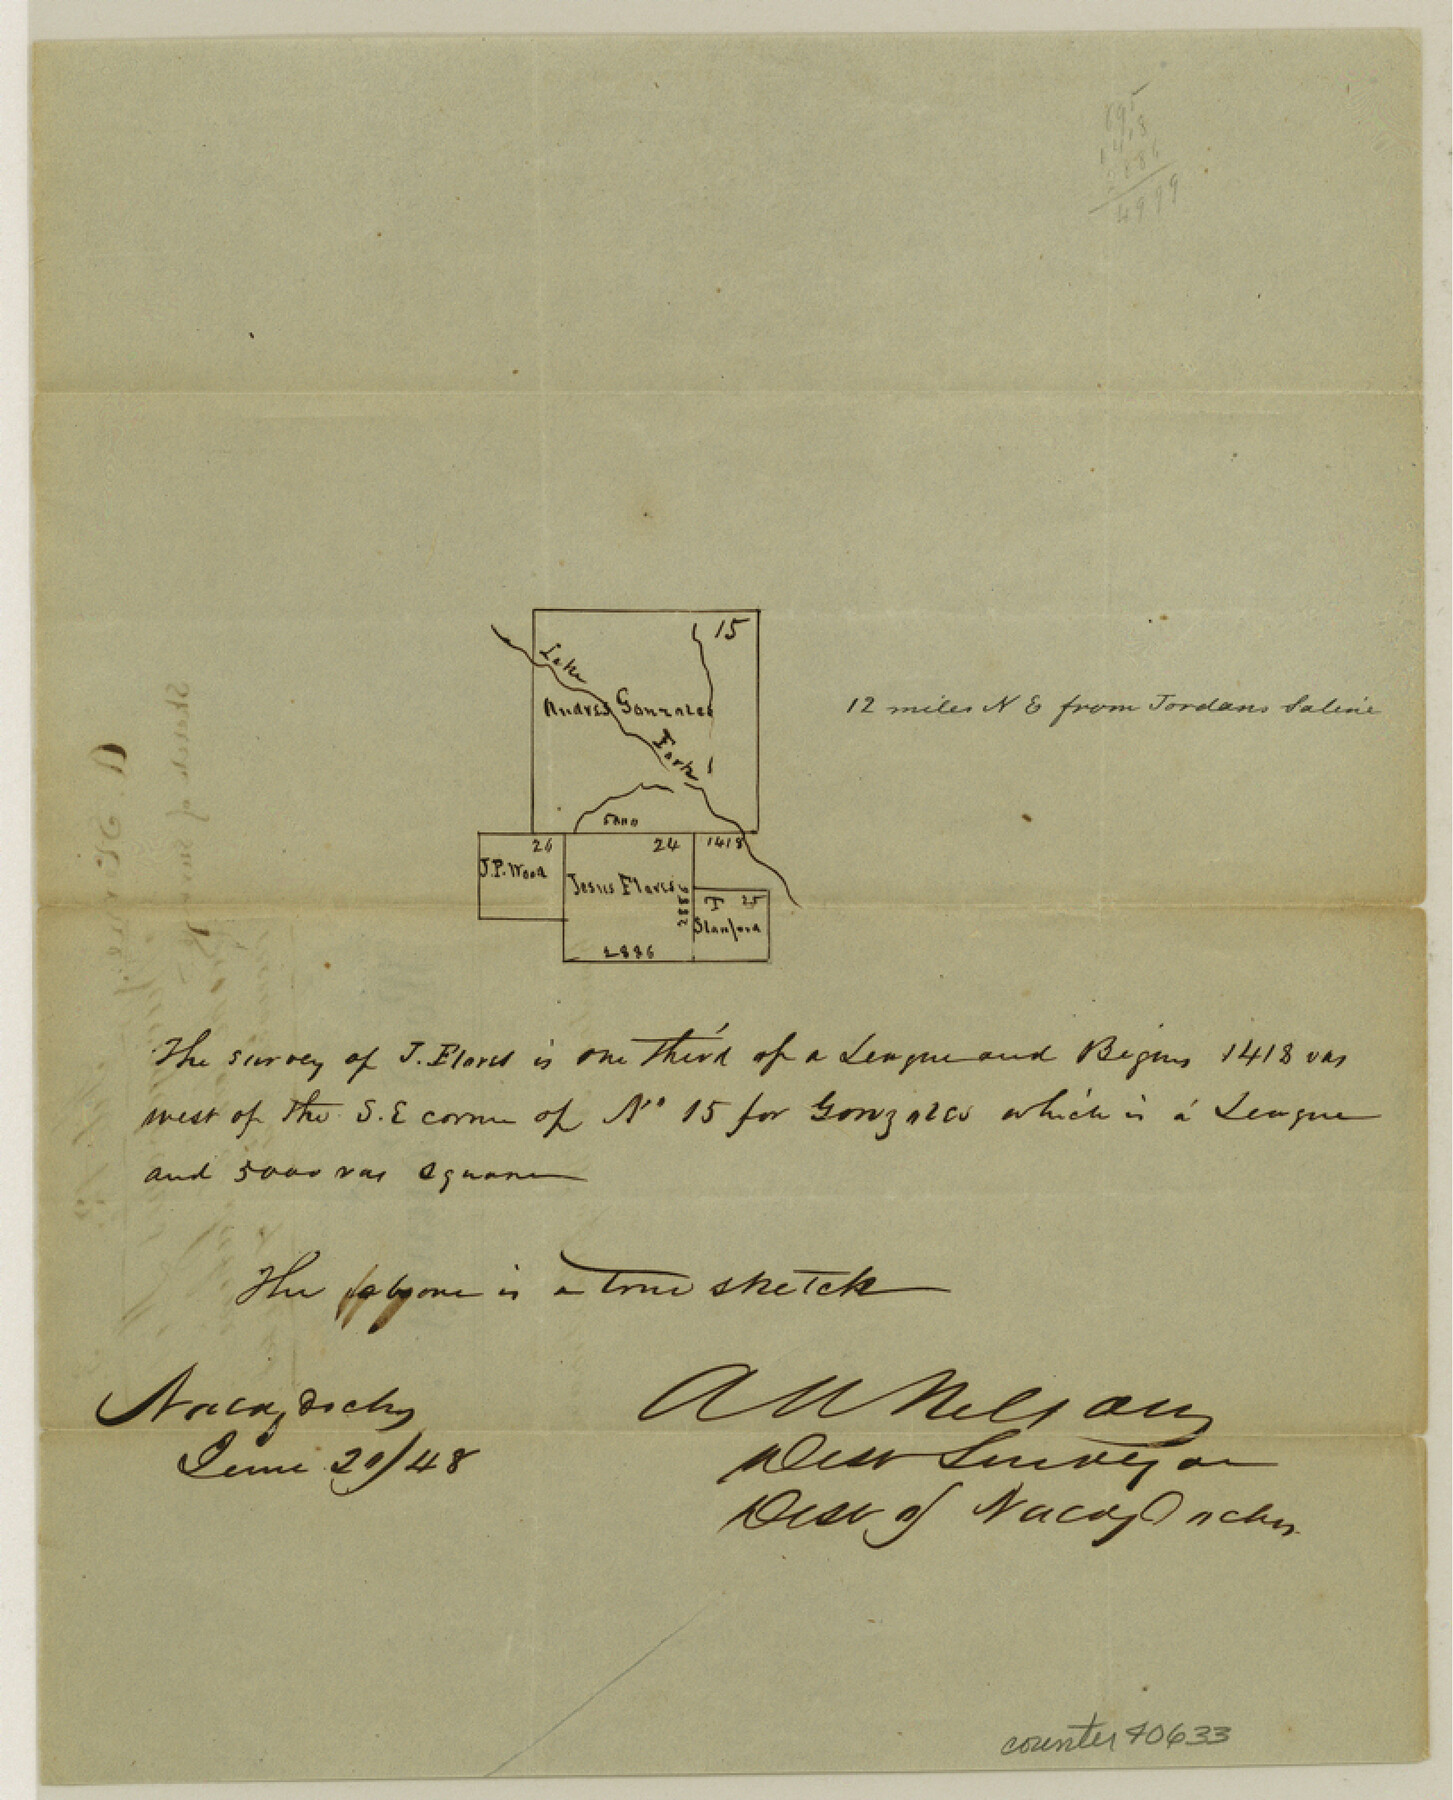 895
1418
2686
4999
15
Lake
Andres Gonzales
Fork
12 miles N E from Jordans Saline
5000
26
24
1418
J.P. Wood
Jesus Flores
2886
F 25
Stanford
2886
The survey of J. Flores is one third of a League and Begins 1418 vas
west of the S.E corner of No 15 for Gonzales which is a League
and 5000 vas square
The above is a true sketch
Nacogdoches
June 20/48
A A Nelson
Dist Surveyor
Dist of Nacogdoches
counter 40633
Sketch of survey